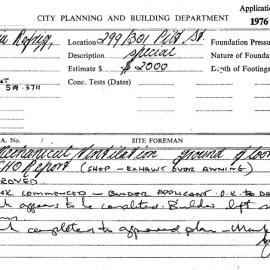 Application
CITY PLANNING AND BUILDING DEPARTMENT
1976
Location 299/301 Pitt St.
Foundation Pressu
Description Special
Nature of Founda
Estimate $ 2000
Depth of Footings
519.3711
Conc. Tests (Dates)
A. No.
SITE FOREMAN
Mechanical Ventilation ground floor
Report (SHOP - EXHAUST OVER AWNING)
ROVED
COMMENCED - BUILDER APPLICANT. O.K. TO DA
appears to be completed. Builder left
completed to approved plan -